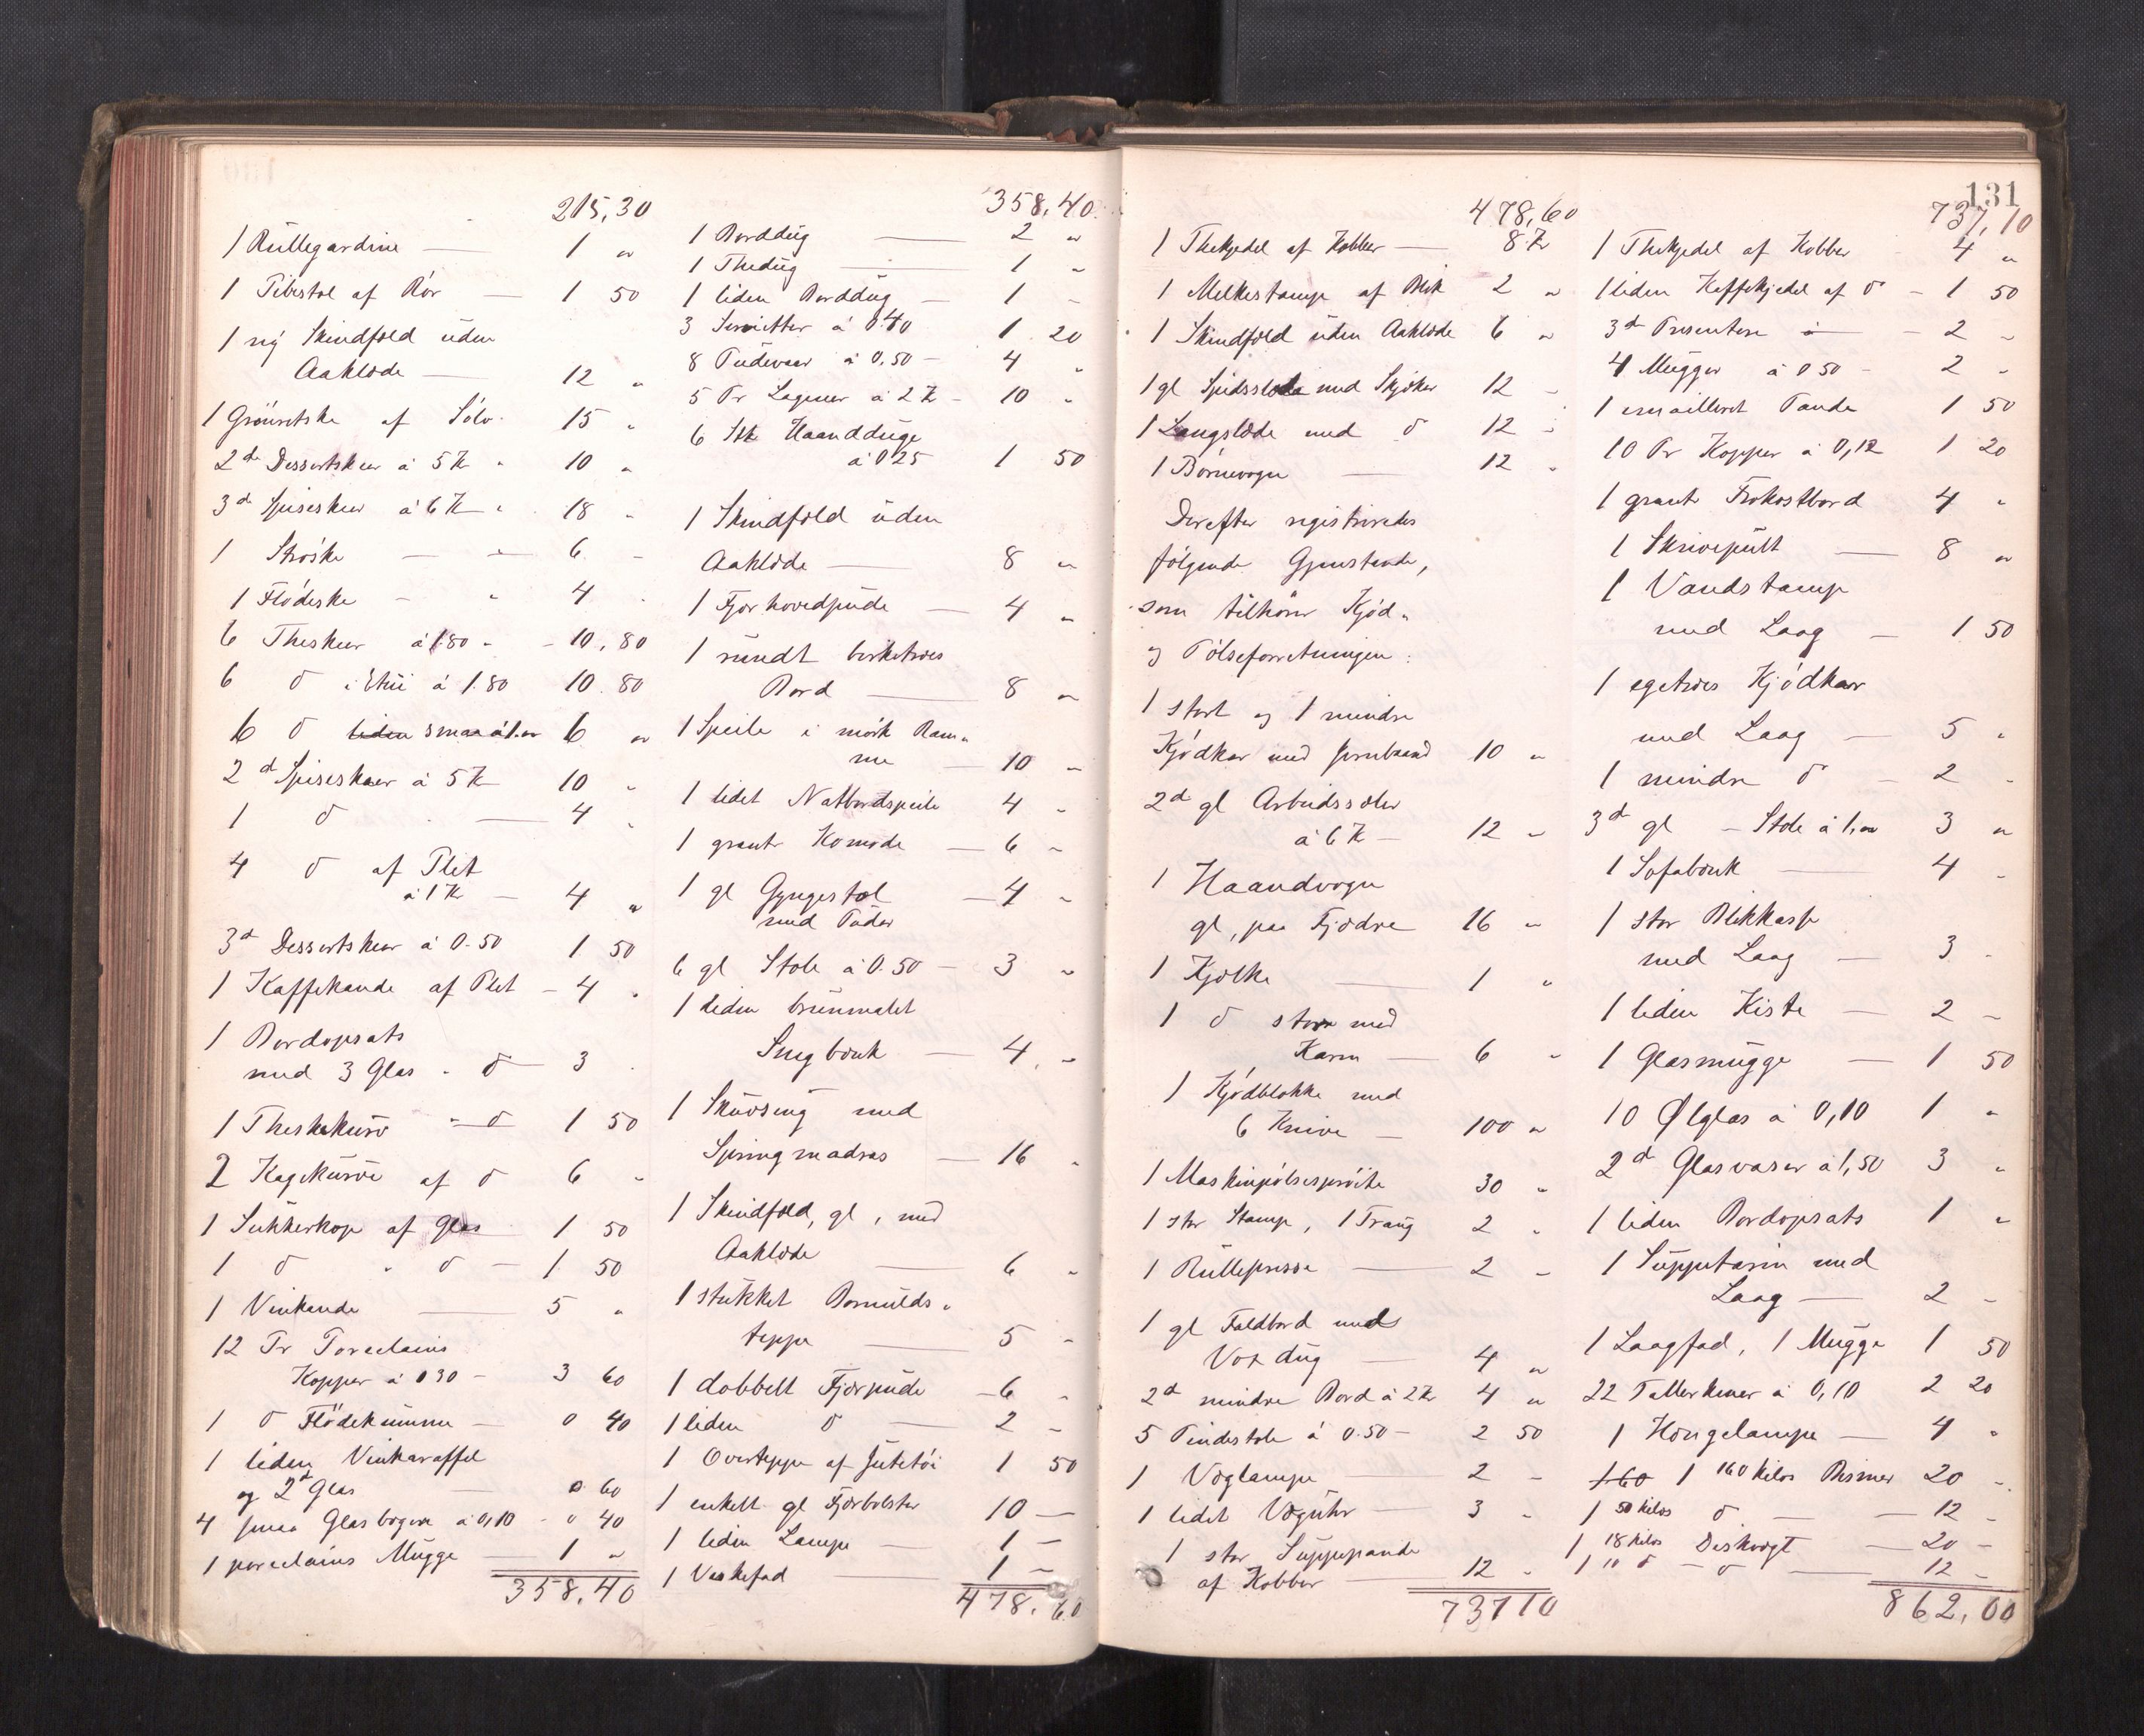 215,30
1 Rullegardine — 1 "
1 Pibestol af Rör — 1 50
1 ny Skindfæld uden
Aaklæde — 12 "
1 Grönretske af Sölv " 15 "
2 d Dessertskeer à 5 Kr " 10 "
3 d Spiseskeer à 6 Kr " 18 "
1 Ströske — " 6 "
1 Flödeske — " 4 "
6 Theskeer à 1.80 " - 10,80
6 d i Etui à 1.80 10.80
6 d liden smaa à 1. " 6 "
2 d Spiseskeer à 5 Kr 10 "
1 d — 4 "
4 d af Plet
à 1 Kr — 4 "
3 d Dessertskeer à 0.50 1 50
1 Kaffekande af Plet — 4 "
1 Bordopsats
med 3 Glas " d — 3 "
1 Theskekurv " d 1 50
2 Kagekurve af d 6 "
1 Sukkerkop af Glas 1 50
1 d " d — 1 50
1 Vinkande — 5 "
12 Pr Porcelains
Kopper à 0 30 — 3 60
1 d Flödekumme — 0 40
1 liden Vinkaraffel
og 2 d Glas — 0 60
4 smaa Glasbægere à 0,10 - 0 40
1 porcelains Mugge — 1 "
358,40
358,40
1 Borddug — 2 "
1 Thedug — 1 "
1 liden Borddug — 1 "
3 Servietter à 0.40 1 20
8 Pudevaar à 0,50 — 4 "
5 Pr Lagener à 2 Kr — 10 "
6 Stk Haandduge
à 0 25 1 50
1 Skindfæld uden
Aaklæde — 8 "
1 Fjær hovedpude — 4 "
1 rundt birketræes
Bord — 8 "
1 Speile i mörk Ram-
me — 10 "
1 lidet Natbordspeile 4 "
1 grant Komode — 6 "
1 gl Gyngestol — 4 "
med Puder
6 gl Stole à 0.50 — 3 "
1 liden brunmalet
Sengbænk — 4 "
1 Skuvseng med
Springmadras — 16 "
1 Skindfæld, gl, med
Aaklæde — 6 "
1 stukket Bomulds-
teppe — 5 "
1 dobbelt Fjærpude — 6 "
1 liden d — 2 "
1 Overteppe af Jutetöi 1 50
1 enkelt gl Fjærbolster 10 —
1 liden Lampe — 1 —
1 Vaskefad — 1 —
478,60
131
478,60
1 Thekjedel af Kobber — 8 Kr
1 Melkestamp af Blik 2 "
1 Skindfæld uden Aaklæde 6 "
1 gl Spidsslæde med Skjæker 12 "
1 Langslæde med d 12 "
1 Börnevogn — 12 "
Derefter registreredes
fölgende Gjenstande,
som tilhörer Kjöd-
og Pölseforretningen:
1 stort og 1 mindre
Kjödkar med Jernbaand 10 "
2 d gl Arbeidssæler
à 6 Kr — 12 "
1 Haandvogn
gl, paa Fjædre 16 "
1 Kjælke — 1 "
1 d stor med
Karm — 6 "
1 Kjödblokke med
6 Knive — 100 "
1 Maskinpölsespröite 30 "
1 stor Stamp, 1 Traug 2 "
1 Rullepresse — 2 "
1 gl Foldbord med
Vox dug — 4 "
2 d mindre Bord à 2 Kr 4 "
5 Pindestole à 0.50 — 2 50
1 Væglampe — 2 "
1 lidet Væguhr — 3 "
1 stor Suppepande
af Kobber — 12 "
737 10
737,10
1 Thekjedel af Kobber 4 "
1 liden Kaffekjedel af d — 1 50
3 d Presentere à — 2 "
4 Mugger à 0 50 — 2 "
1 emailleret Pande 1 50
10 Pr Kopper à 0,12 1 20
1 grant Frokostbord 4 "
1 Skrivepult — 8 "
1 Vandstamp
med Laag — 1 50
1 egetræes Kjödkar
med Laag — 5 "
1 mindre d — 2 "
3 d gl — Stole à 1, " 3 "
1 Sofabænk — 4 "
1 stor Blikkasse
med Laag — 3 "
1 liden Kiste — 2 "
1 Glasmugge — 1 50
10 Ølglas à 0,10 1 "
2 d Glasvaser à 1,50 3 "
1 liden Bordopsats 1 "
1 Suppeterin med
Laag — 2 "
1 Laagfad, 1 Mugge 1 50
22 Tallerkener à 0,10 2 20
1 Hængelampe — 4 "
160 1 160 kilos Bismer 20 "
1 50 kilos d — 12 "
1 18 kilos Diskvægt — 20 "
1 10 d — d — 12 "
862,00